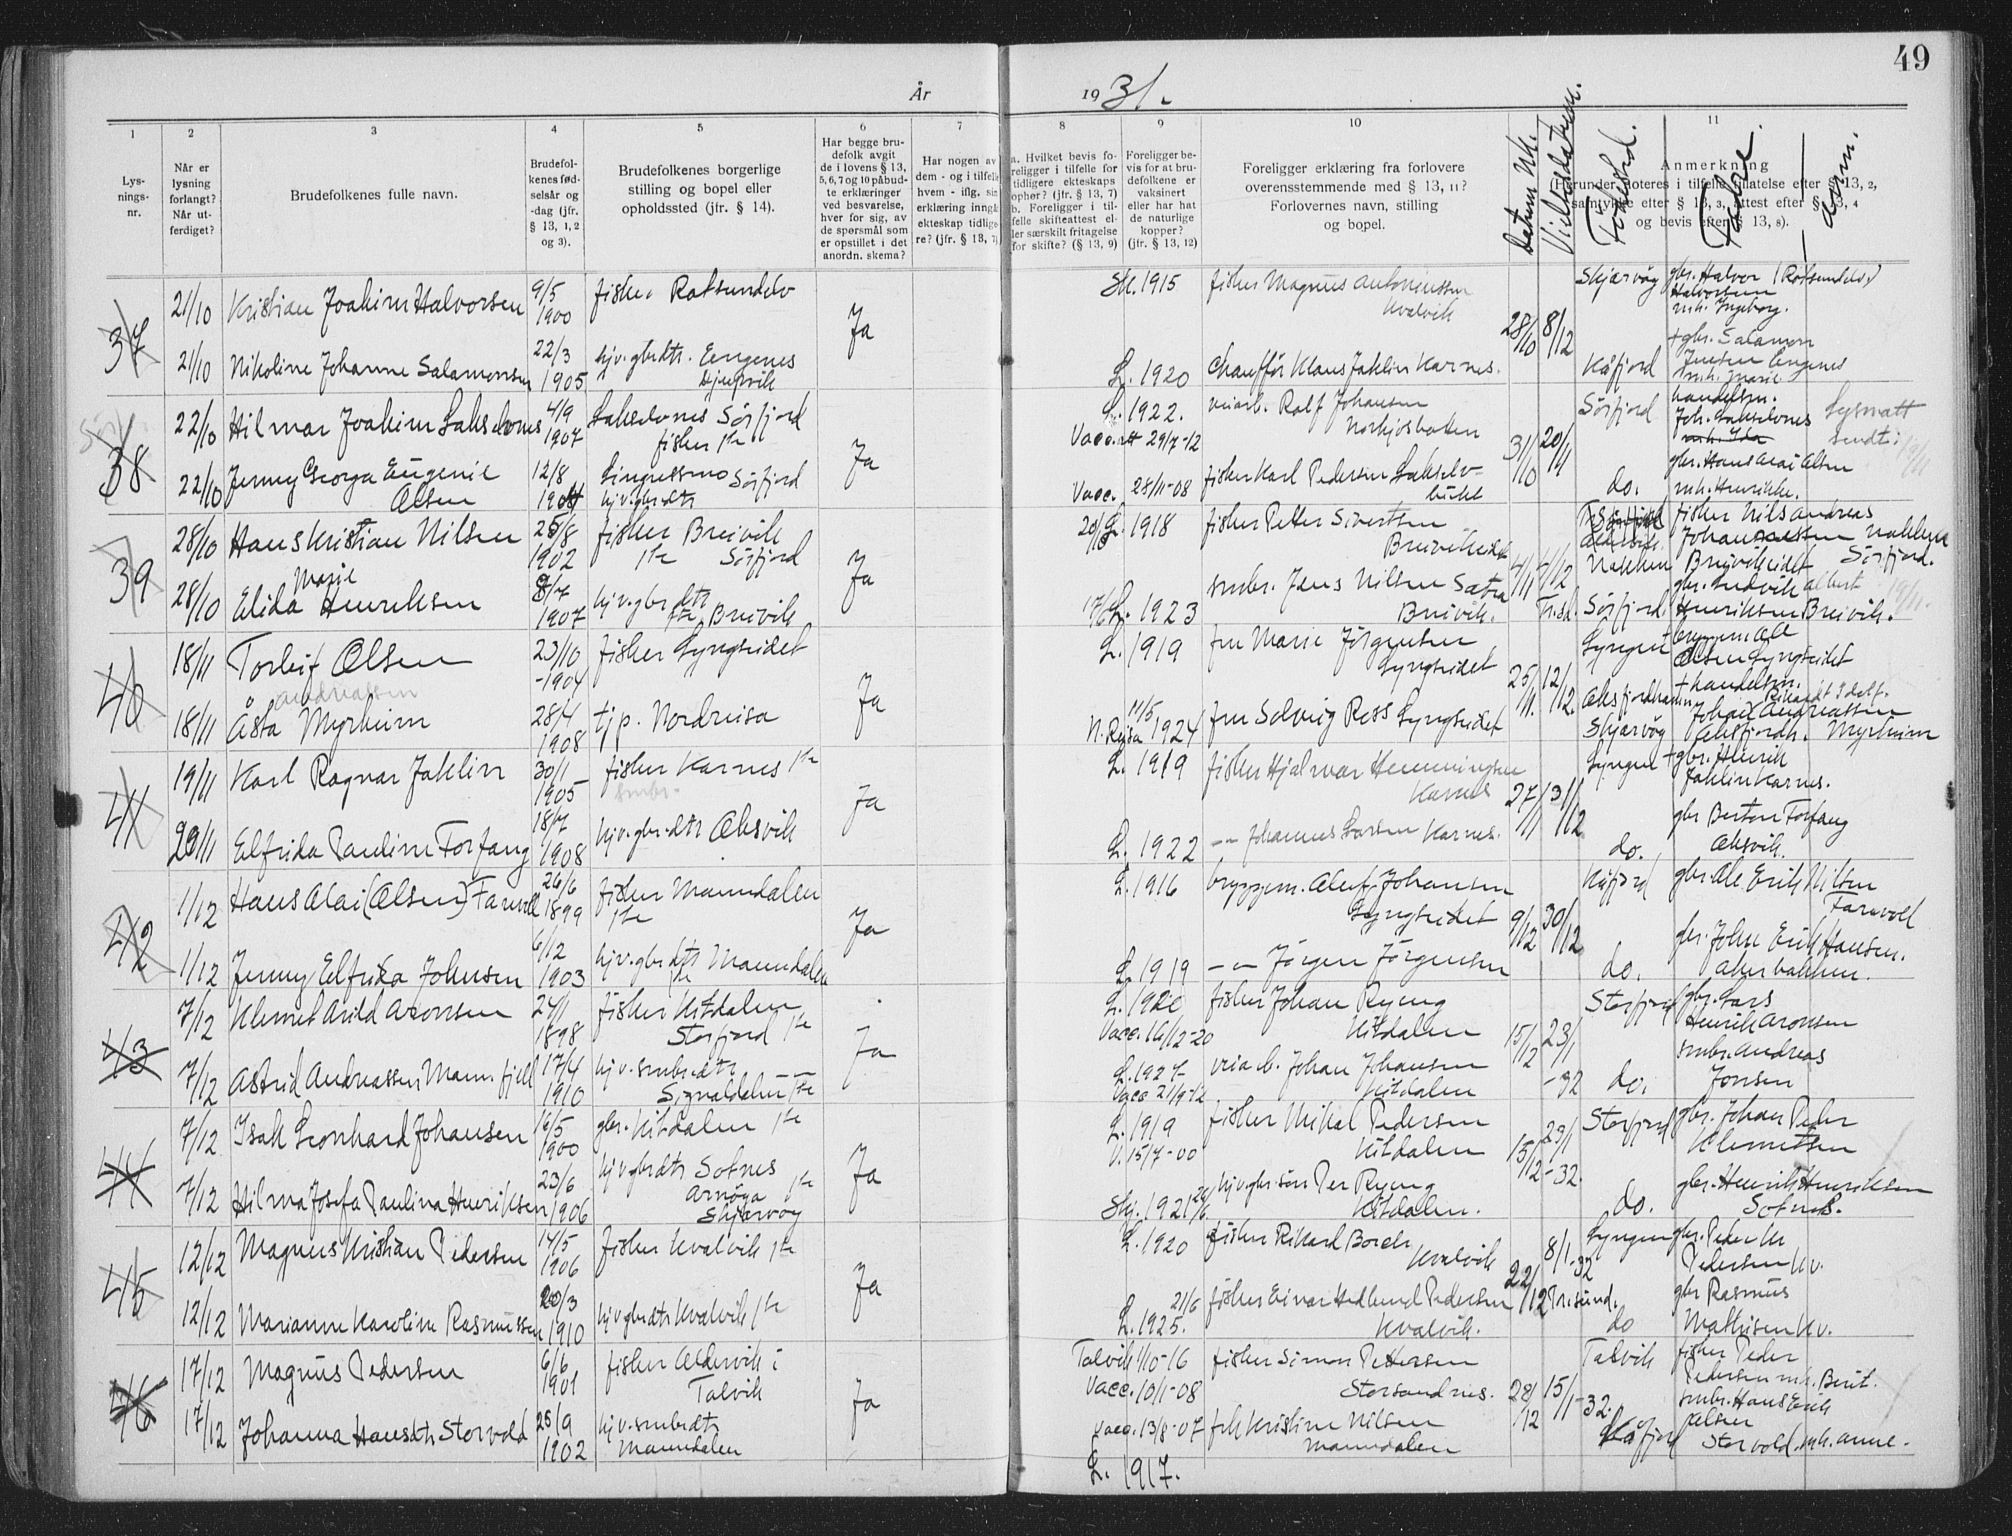 49
År
19 31.
1
2
3
4
5
6
7
8
9
10
11
Lys-
nings-
nr.
Når er
lysning
forlangt?
Når ut-
ferdiget?
Brudefolkenes fulle navn.
Brudefol-
kenes fød-
selsår og
-dag (jfr.
§ 13, 1, 2
og 3).
Brudefolkenes borgerlige
stilling og bopel eller
opholdssted (jfr. § 14).
Har begge bru-
defolk avgit
de i lovens § 13,
5, 6, 7 og 10 påbud-
te erklæringer
ved besvarelse,
hver for sig, av
de spørsmål som
er opstillet i det
anordn. skema?
Har nogen av
dem - og i tilfelle
hvem - iflg. sin
erklæring inngå
ekteskap tidlige-
re? (jfr. § 13, 7)
a. Hvilket bevis fo-
religger i tilfelle for
tidligere ekteskaps
ophør? (jfr. § 13, 7)
b. Foreligger i til-
felle skifteattest el-
ler særskilt fritagelse
for skifte? (§ 13, 9)
Foreligger be-
vis for at bru-
defolkene er
vaksinert
eller har hat
de naturlige
kopper?
(jfr. § 13, 12)
Foreligger erklæring fra forlovere
overensstemmende med § 13, 11?
Forlovernes navn, stilling
og bopel.
Datum utst.
Vielsesdatum.
Fødested.
Anmerkning
Fader
anm.
37
21/10 Kristian Joakim Halvorsen 9/5 1900 fisker Rotsundelv
Ja
Skj. 1915 fisker Magnus Antoniussen
Kvalvik
28/10 8/12
Skjærvøy gbr. Halvor (Rotsundelv)
Halvorsen
m.h. Ingeborg.
21/10 Nikoline Johanne Salamonsen 22/3 1905 hjv. gbrdtr. Engenes
Djupvik
L. 1920 Chauffør Klaus Jaklin Karnes.
Kåfjord + gbr. Salamon
Jensen Engenes
m.h. Marie
38
22/10 Hilmar Joakim Lakselvnes 4/9 1907 Lakselvnes Sörfjord
fisker
Ja
L. 1922. veiarb. Ralf Johansen
Nordkjosbotn
Vacc.att 29/7-12
31/10 20/11
Sörfjord handelsm.
Joh. Lakselvnes
m.h. Ida
22/10 Jenny Georga Eugenie
Olsen
12/8
hjv. gbrdtr. Sörfjord
Vacc. 28/11-08 fisker Karl Pedersen Lakselv-
bukt
do. gbr. Hans Alai Olsen
m.h. Henrikke.
39
28/10 Hans Kristian Nilsen 25/8 1902 fisker Breivik
Sörfjord
Ja
L. 1918 fisker Petter Sivertsen
Breivikeidet
4/11
Nakken fisker Nils Andreas
Breivikeidet Sörfjord.
28/10 Elida Marie Henriksen 8/7 1907 hjv. gbrdtr. Breivik
L. 1923 smbr. Jens Nilsen
Breivik.
Sörfjord gbr. Ludvik Albert
Henriksen Breivik.
40
18/11 Torleif Olsen 23/10 -1904 fisker Lyngseidet
Ja
L. 1919 fru Marie Jörgensen
Lyngseidet
25/11. 12/12.
Lyngen + byggm. Ole
Olsen Lyngseidet
18/11 Åsta Myrheim 28/4 1908 tjp. Nordreisa
Andreassen
N. Reisa 11/5 1924 fru Solveig Ross Lyngseidet
Skjærvøy + handelsm.
Johan Andreassen
Myrheim
41
19/11 Karl Ragnar Jaklin 30/1 1905 fisker Karnes
smbr.
Ja
L. 1919 fisker Hjalmar Hemmingsen
Karnes
27/11 31/12
Lyngen + gbr. Henrik
Jaklin Karnes.
20/11 Elfrida Pauline Forfang 18/7 1908 hjv. gbr.dtr. Oksvik
L. 1922 -"- Johannes Larsen Karnes.
do. gbr Berton Forfang
Oksvik.
42
1/12 Hans Alai (Olsen) Farvoll 26/6 1899 fisker Manndalen
Ja
L. 1916 byggm. Oluf Johansen
Lyngseidet
9/12 30/12
Kåfjord gbr. Ole Erik Nilsen
Farvoll
1/12 Jenny Elfrida Johnsen 6/12 1903 hjv. gbrdtr Manndalen
L. 1919 -"- Jörgen Jörgensen
do. gbr. John Erik Hansen.
43
7/12 Klemet Arild Aronsen 24/1 1898 fisker Kitdalen
Storfjord
Ja
L. 1920 fisker Johan Ryeng
Kitdalen
Vacc. 16/12-20
15/12 23/1 -32
Storfjord gbr. Lars
Henrik Aronsen
7/12 Astrid Andreassen Mannfjell 17/4 1910 hjv. smbrdtr
Signaldalen
L. 1927 veiarb. Johan Johansen
Kitdalen
Vacc 21/9-12
do. smbr. Andreas
Jonsen
44
7/12 Isak Leonhard Johansen 16/5 1900 gbr. Kitdalen
Ja
L. 1919 fisker Mikal Pedersen
Kitdalen
V. 15/7-00
15/12 23/1 -32.
Storfjord gbr. Johan Peder
Klemetsen
7/12 Hilma Josefa Paulina Henriksen 23/6 1906 hjv gbrdtr Sotnes
Arnöya
Skjærvøy
Skj. 1921 hjv. gbr. sön Per Ryeng
Kitdalen.
do. gbr. Henrik Henriksen
Sotnes.
45
12/12 Magnus Kristian Pedersen 14/5 1906 fisker Kvalvik
Ja
L. 1920 fisker Rikard Borch
Kvalvik
22/12 8/1-32
Lyngen gbr. Peder
Pedersen Kv.
12/12 Marianne Karoline Rasmussen 20/3 1910 hjv gbrdtr Kvalvik
L. 21/6 1925. fisker Einar Hedlund Pedersen
Kvalvik.
do gbr Rasmus
Mathisen Kv.
46
17/12 Magnus Pedersen 6/6 1901 fisker Aldervik i
Talvik
Ja
Talvik 1/10-16 fisker Simon Pettersen
Storsandnes.
Vacc. 10/1-08
28/12 15/1-32.
Talvik fisker Peder
Pedersen m.h. Berit.
17/12 Johanna Hansdtr Storvold 25/9 1902 hjv. smbrdtr
Manndalen
Vacc. 13/8-07 frk Kristine Nilsen
Manndalen
L. 1917.
Kåfjord smbr. Hans Erik
Olsen
Storvold. m.h. Anne.